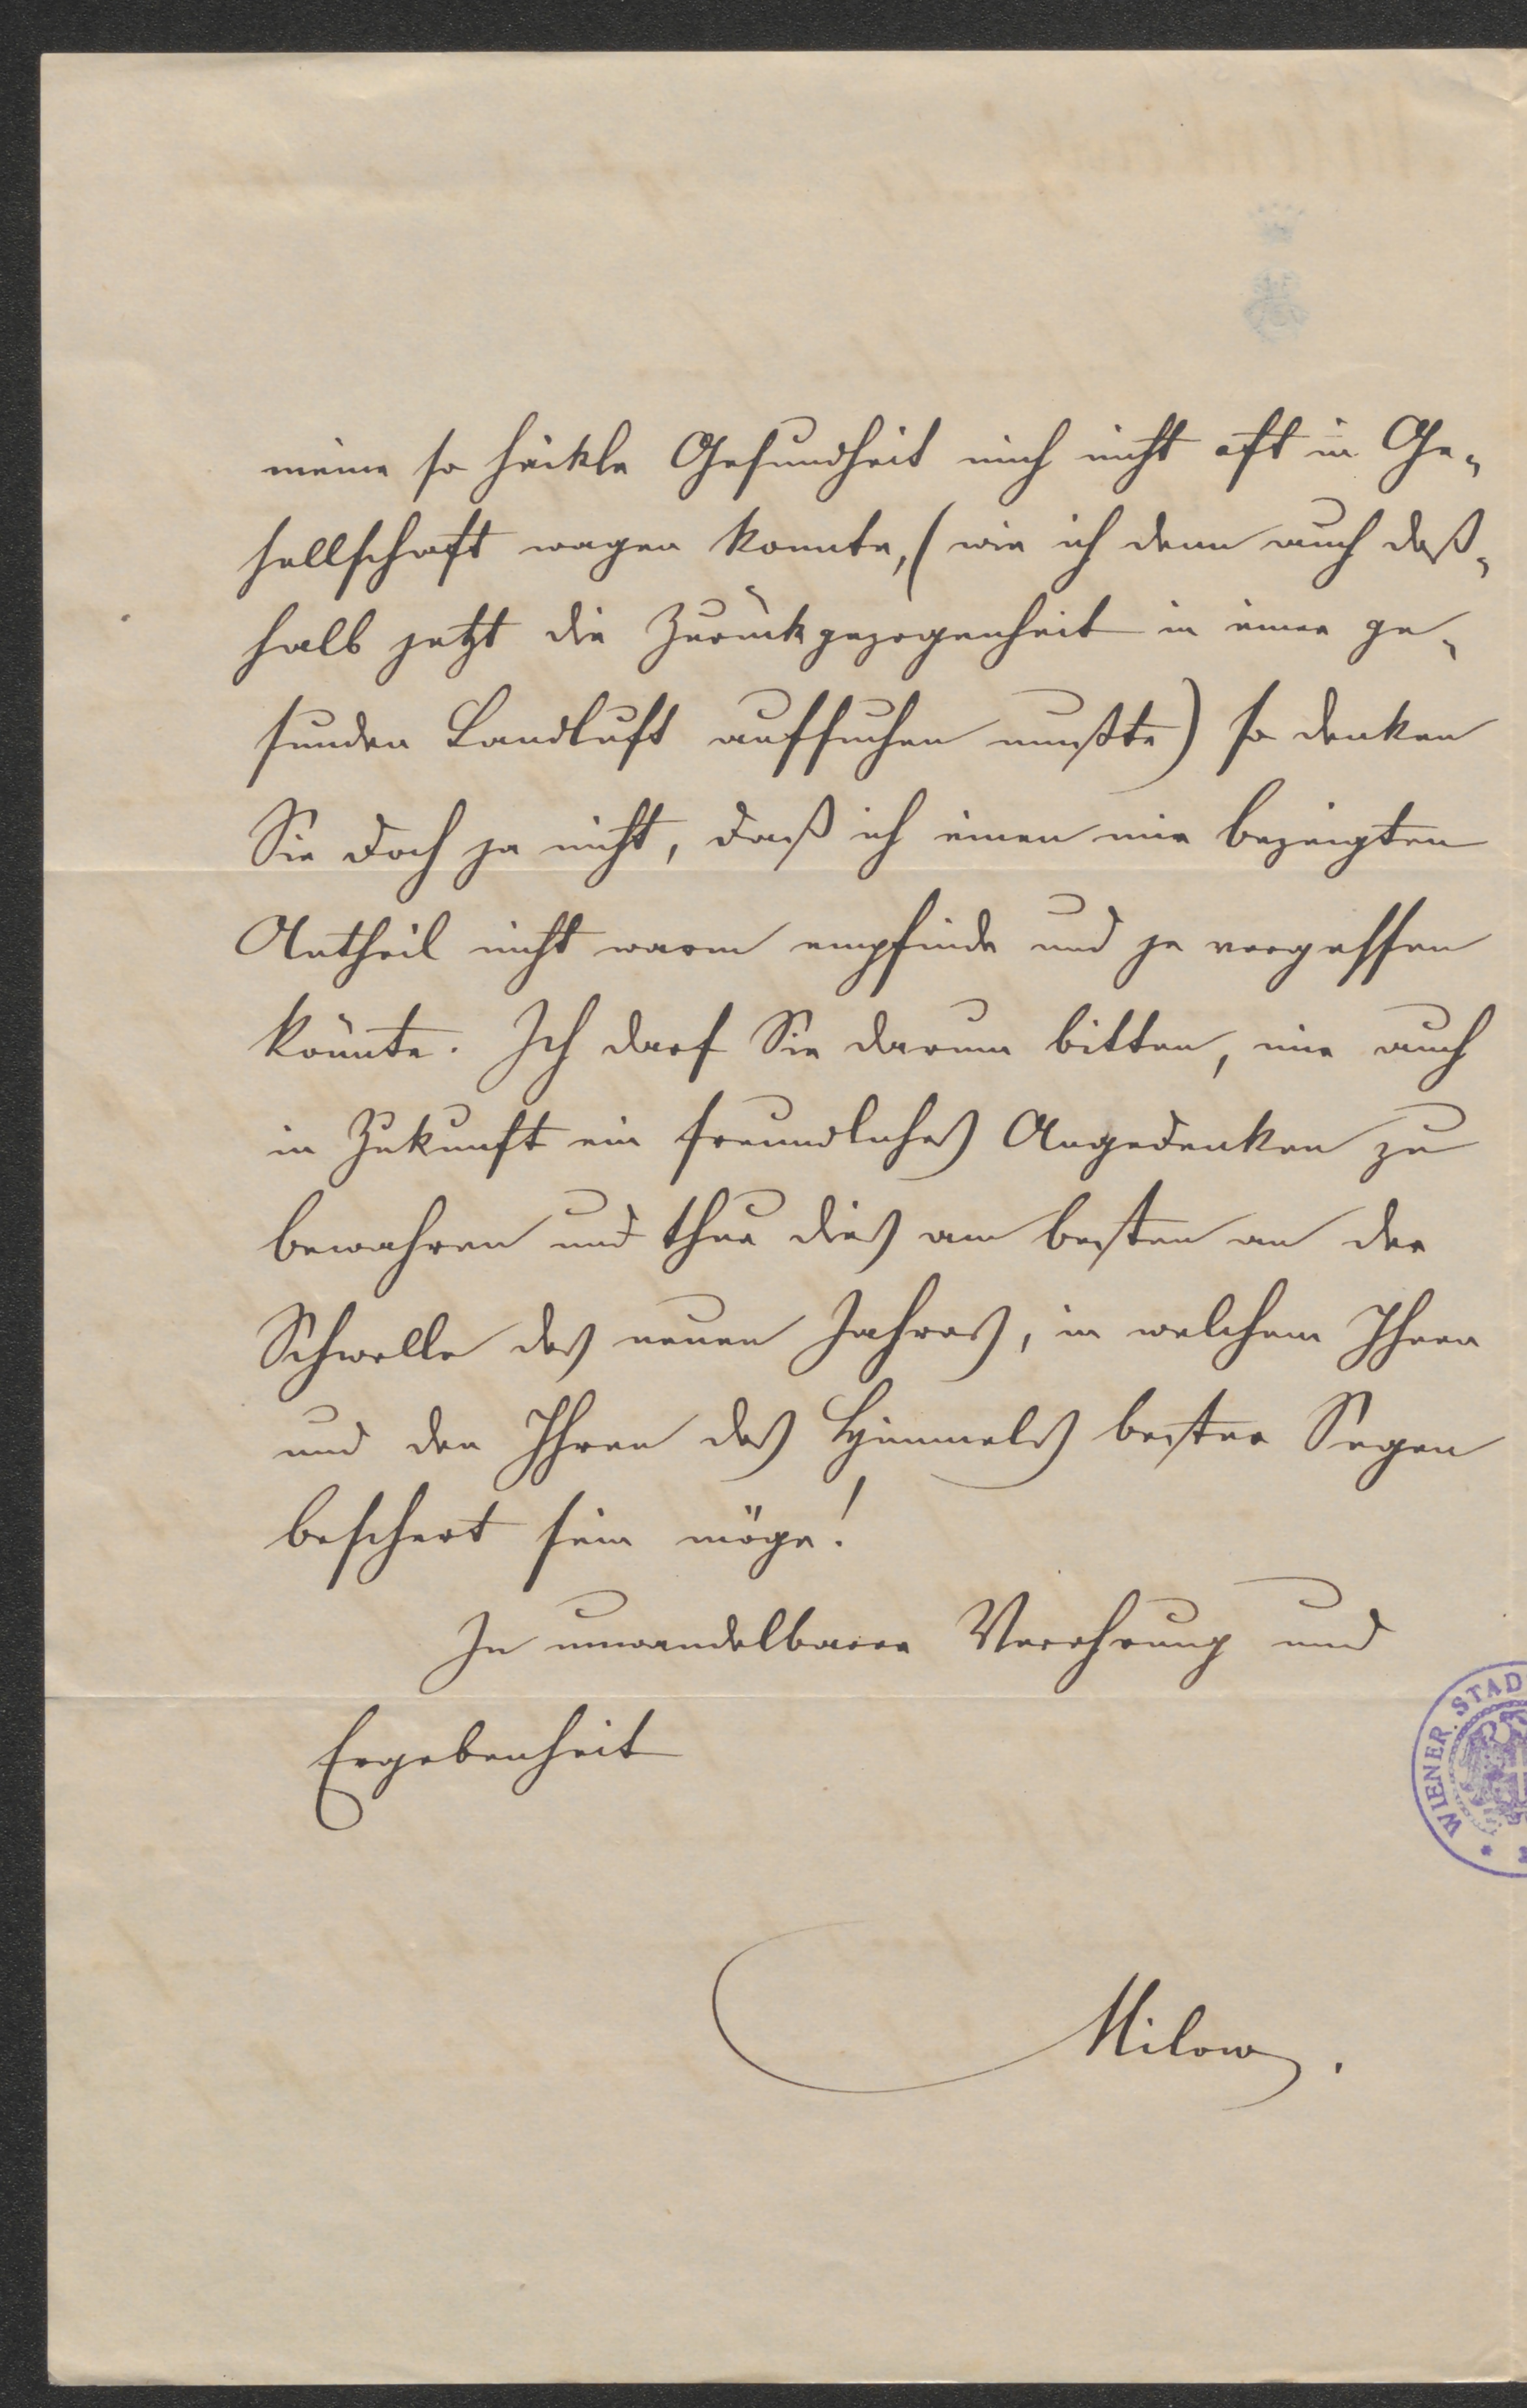 meine so häikle Gesundheit mich nicht oft in Ge-
sellschaft wagen konnte, (wie ich denn auch deß-
halb jetzt die Zurückgezogenheit in einer ge-
sunden Landluft aufsuchen mußte) so denken
Sie doch ja nicht, daß ich einen mir bezeigten
Antheil nicht warm empfinde und je vergessen
könnte. Ich darf Sie darum bitten, mir auch
in Zukunft ein freundliches Angedenken zu
bewahren und thue dies am besten an der
Schwelle des neuen Jahres, in welchem Ihnen
und den Ihren des Himmels bester Segen
beschert sein möge!
In unwandelbarer Verehrung und
Ergebenheit
WIENER STAD
Milow.